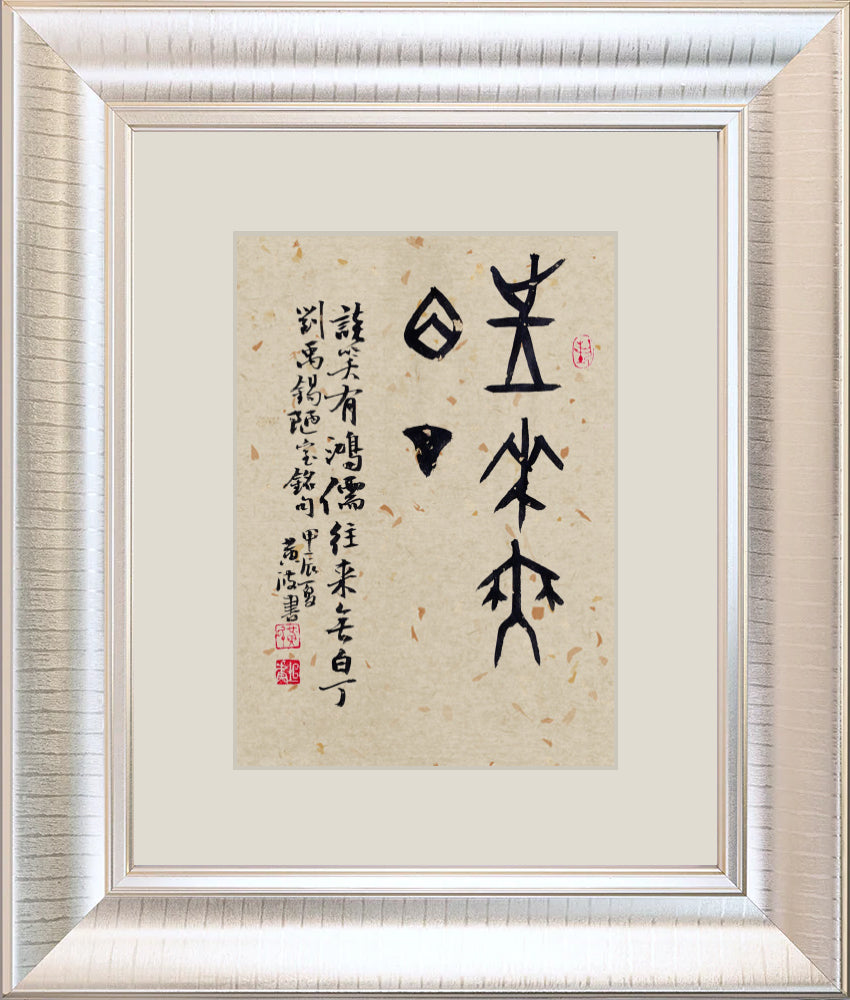 往來無
白丁
談笑有鴻儒往来無白丁
劉禹錫陋室銘句
甲辰夏
黄波書